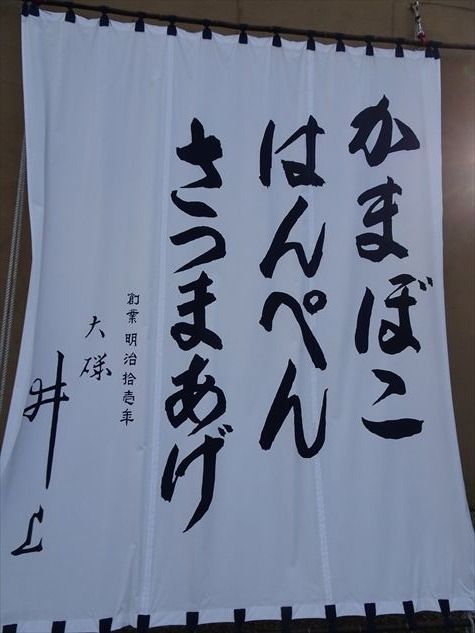 かまぼこ
はんぺん
さつまあげ
創業明治拾壱年
大磯
井上